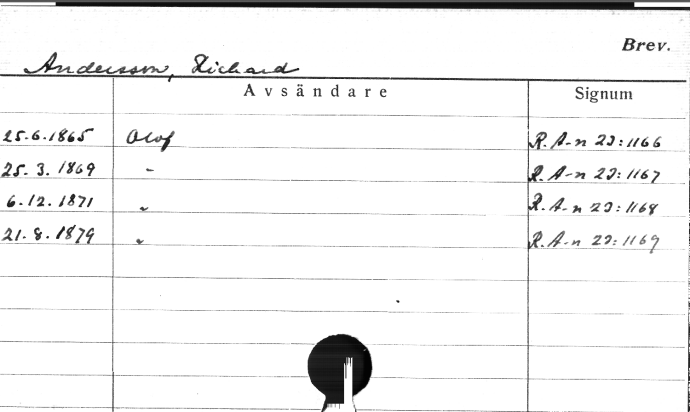 Brev.
Andersson, Richard
Avsändare Signum
25.6.1865 Olof R. A-n 23:1166
25. 3. 1869 - R. A-n 23:1167
6.12. 1871 " R. A-n 23:1168
21. 8. 1879 " R. A-n 23:1169